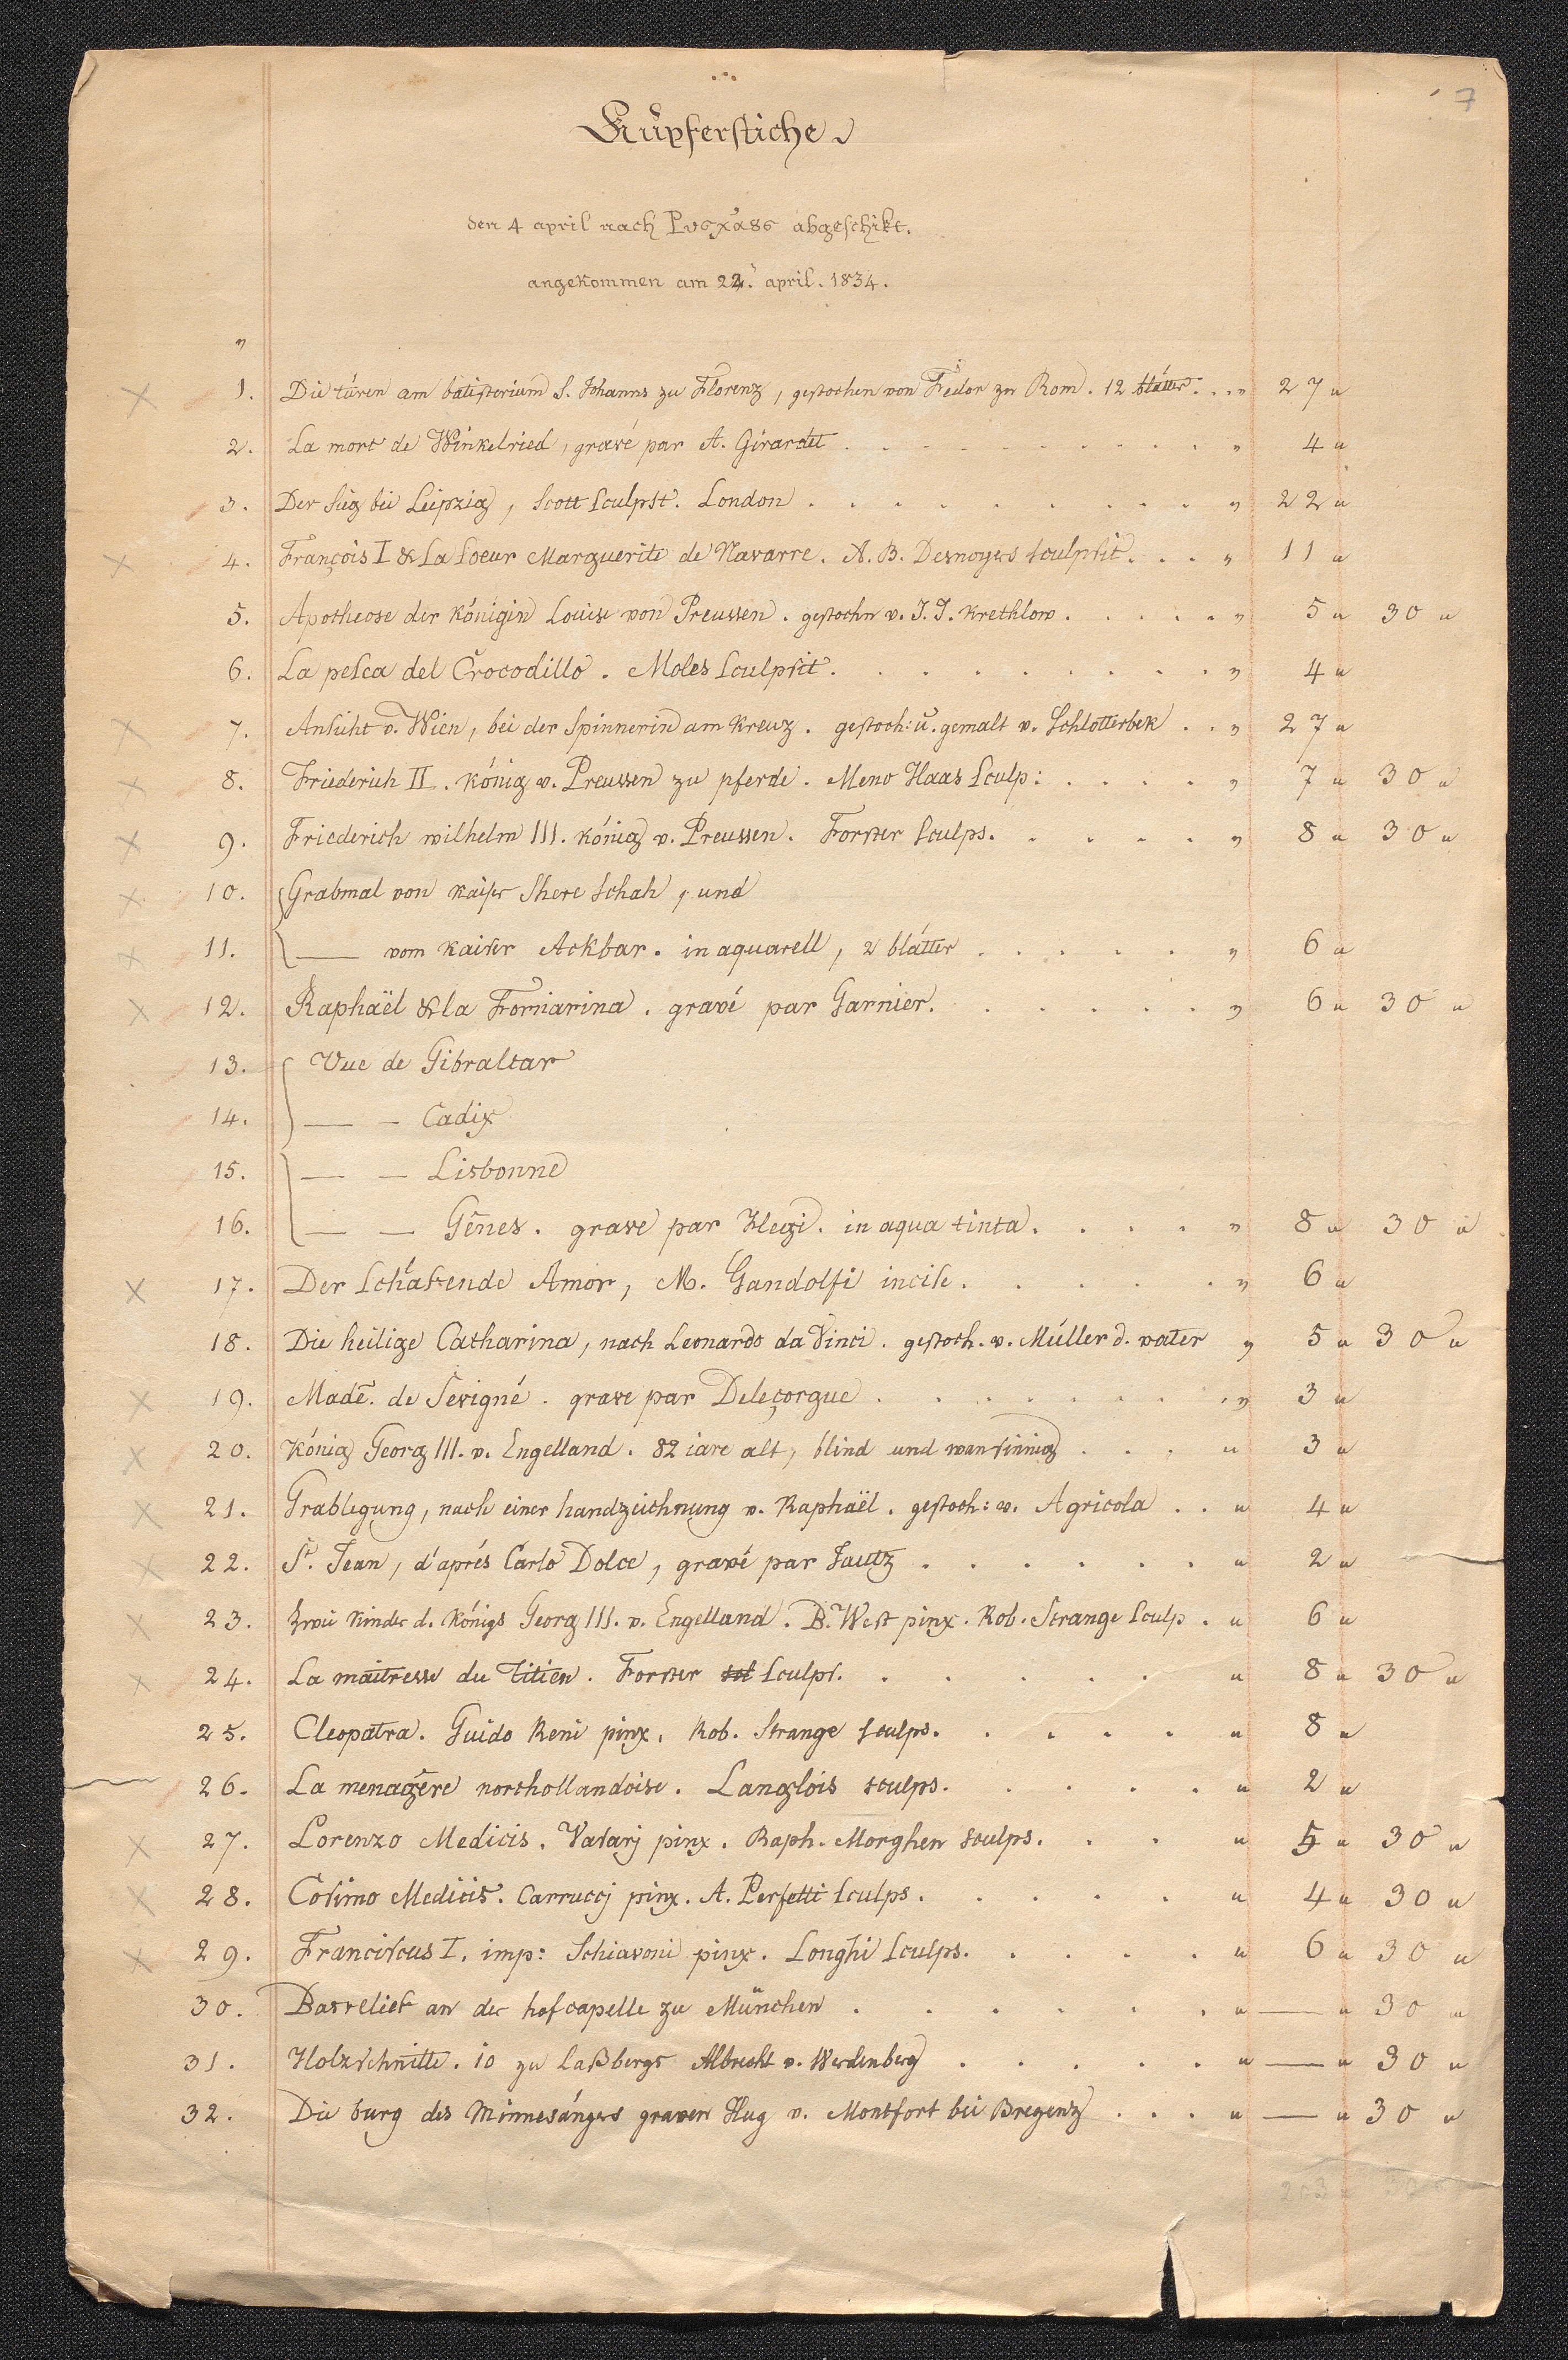 7
Kupferstiche
den 4 april nach abgeschikt.
angekommen am 22. april. 1834.
1. Die türen am batisterium S. Johanns zu Florenz, gestochen von Fedor zu Rom. 12 blätter. . . . " 27 "
2. La mort de Winkelried, gravé par A. Girardet . . . . . . . . . . " 4 "
3. Der sieg bei Leipzig, Scott sculpst. London . . . . . . . . . . " 22 "
4. François I & sa soeur Marguerite de Navarre. A. B. Desnoyers sculpsit. . . . " 11 "
5. Apotheose der Königin Louise von Preussen. gestochn v. J. J. Krethlow. . . . . . " 5 " 30 "
6. La pesca del Crocodillo. Moles sculpsit. . . . . . . . . . " 4 "
7. Ansicht v. Wien, bei der Spinnerin am Kreuz. gestoch: u. gemalt v. Schlotterbek . . " 27 "
8. Friederich II. König v. Preussen zu pferde. Meno Haas sculp: . . . . . " 7 " 30 "
9. Friederich wilhelm III. König v. Preussen. Forster sculps. . . . . . " 8 " 30 "
10. Grabmal von kaiser Shere schah, und
11. — vom kaiser Ackbar. in aquarell, 2 blätter . . . . . . " 6 "
12. Raphaël & la Fornarina. gravé par Garnier. . . . . . . " 6 " 30 "
13. Vue de Gibraltar
14. — — Cadix
15. — — Lisbonne
16. — — Gênes. gravé par Hegi. in aqua tinta. . . . . " 8 " 30 "
17. Der schlafende Amor, M. Gandolfi incise. . . . . . . " 6 "
18. Die heilige Catharina, nach Leonardo da Vinci. gestoch. v. Müller d. vater " 5 " 30 "
19. Made. de Sevigné. gravé par Deleçorgue . . . . . . . . " 3 "
20. König Georg III. v. Engelland. 82 iare alt, blind und wansinnig . . . " 3 "
21. Grablegung, nach einer handzeichnung v. Raphaël. gestoch: v. Agricola . . " 4 "
22. St. Jean, d'aprés Carlo Dolce, gravé par . . . . . . " 2 "
23. Zwei kinder d. Königs Georg III. v. Engelland. B. West pinx. Rob. Strange sculp. " 6 "
24. La maitresse du Titien. Forster sculps. . . . . . . " 8 " 30 "
25. Cleopatra. Guido Reni pinx. Rob. Strange sculps. . . . . . " 8 "
26. La menagère northollandoise. Langlois sculps. . . . . " 2 "
27. Lorenzo Medicis. Vasarj pinx. Raph. Morghen sculps. . . . " 5 " 30 "
28. Cosimo Medicis. Carruccj pinx. A. Perfetti sculps. . . . . . " 4 " 30 "
29. Franciscus I. imp: Schiavoni pinx. Longhi sculps. . . . . . " 6 " 30 "
30. Basrelief an der hofcapelle zu München . . . . . . . " — " 30 "
31. Holzschnitte. 10 zu Laßbergs Albrecht v. Werdenberg . . . . . . " — " 30 "
32. Die burg des Minnesängers graven Hug v. Montfort bei Bregenz . . . . " — " 30 "
203 " 30 "